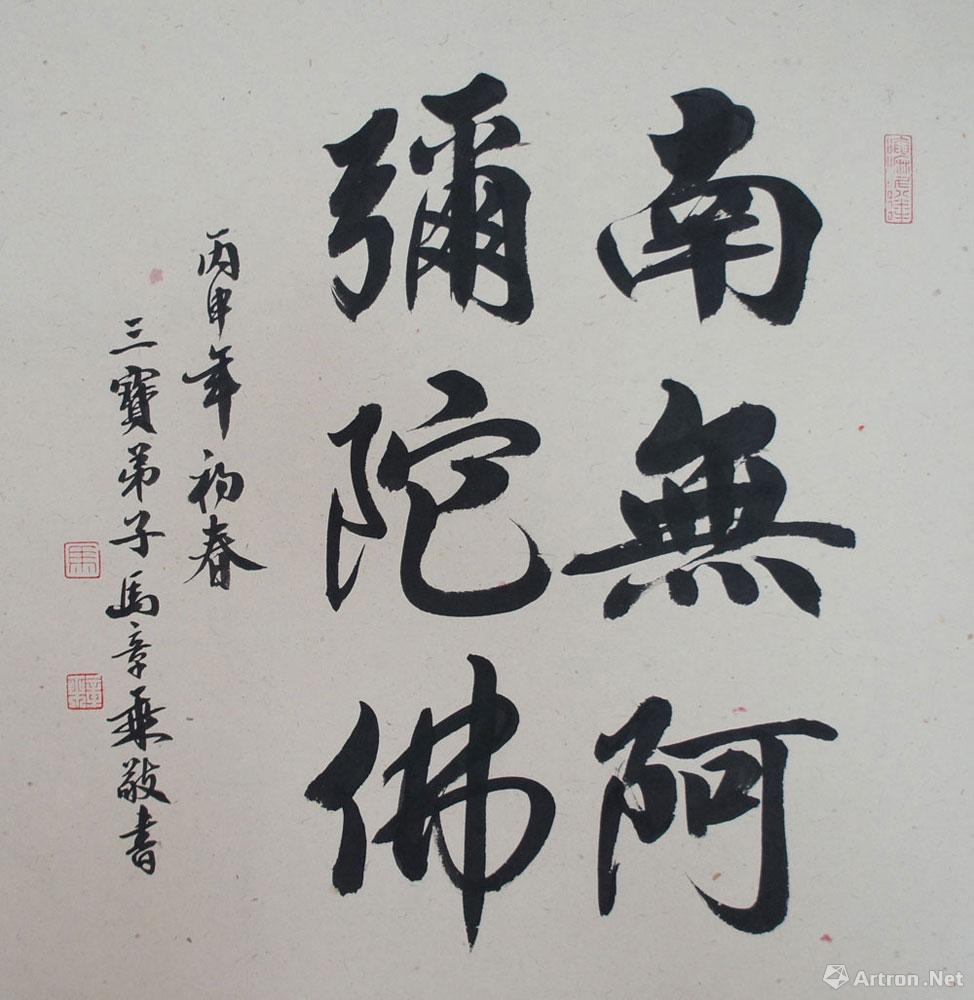 南無阿
彌陀佛
丙申年初春
三寶弟子馬章乘敬書
Artron.Net